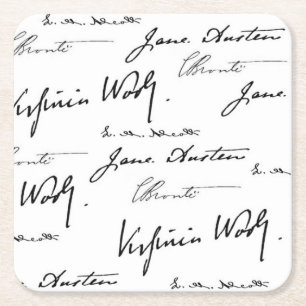 L. M. Alcott
Jane Austen
CBrontë
Virginia Woolf.
Jane
L. M. Alcott
Brontë
Jane Austen
L. M. Alcott
Woolf.
CBrontë
Virginia Woolf.
Austen
L. M. Alcott